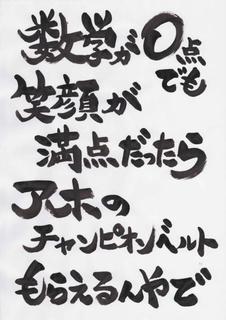 数学が0点
でも
笑顔が
満点だったら
アホの
チャンピオンベルト
もらえるんやで